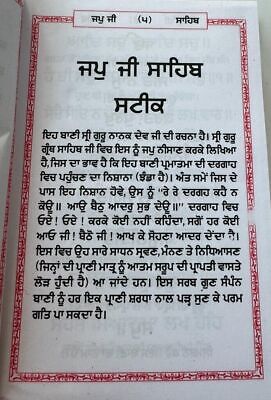 ਜਪੁ ਜੀ (੫) ਸਾਹਿਬ
ਜਪੁ ਜੀ ਸਾਹਿਬ
ਸਟੀਕ
ਇਹ ਬਾਣੀ ਸ੍ਰੀ ਗੁਰੂ ਨਾਨਕ ਦੇਵ ਜੀ ਦੀ ਰਚਨਾ ਹੈ। ਸ੍ਰੀ ਗੁਰੂ
ਗ੍ਰੰਥ ਸਾਹਿਬ ਜੀ ਵਿਚ ਇਸ ਨੂੰ ਜਪੁ ਨੀਸਾਣ ਕਰਕੇ ਲਿਖਿਆ
ਹੈ, ਜਿਸ ਦਾ ਭਾਵ ਹੈ ਕਿ ਇਹ ਬਾਣੀ ਪ੍ਰਮਾਤਮਾ ਦੀ ਦਰਗਾਹ
ਵਿਚ ਪਹੁੰਚਣ ਦਾ ਨਿਸ਼ਾਨ (ਝੰਡਾ ਹੈ)। ਅੰਤ ਸਮੇਂ ਜਿਸ ਦੇ
ਪਾਸ ਇਹ ਨਿਸ਼ਾਨ ਹੋਵੇ, ਉਸ ਨੂੰ "ਰੇ ਰੇ ਦਰਗਹ ਕਹੈ ਨ
ਕੋਊ॥ ਆਉ ਬੈਠੁ ਆਦਰੁ ਸੁਭ ਦੇਊ॥" ਦਰਗਾਹ ਵਿਚ
ਓਏ! ਓਏ! ਕਰਕੇ ਕੋਈ ਨਹੀਂ ਕਹਿੰਦਾ, ਸਗੋਂ ਹਰ ਕੋਈ
ਆਓ ਜੀ! ਬੈਠੋ ਜੀ! ਆਖ ਕੇ ਸੋਹਣਾ ਆਦਰ ਦੇਂਦਾ ਹੈ।
ਇਸ ਵਿਚ ਉਹ ਸਾਰੇ ਸਾਧਨ ਸੁਵਣ, ਮੰਨਣ ਤੇ ਨਿਧਿਆਸਣ
(ਜਿਨ੍ਹਾਂ ਦੀ ਪ੍ਰਾਣੀ ਮਾਤ੍ਰ ਨੂੰ ਆਤਮ ਸਰੂਪ ਦੀ ਪ੍ਰਾਪਤੀ ਵਾਸਤੇ
ਲੋੜ ਹੁੰਦੀ ਹੈ) ਆ ਜਾਂਦੇ ਹਨ। ਇਸ ਸਰਬ ਗੁਣ ਸੰਪੰਨ
ਬਾਣੀ ਨੂੰ ਹਰ ਇਕ ਪ੍ਰਾਣੀ ਸ਼ਰਧਾ ਨਾਲ ਪੜ੍ਹ ਸੁਣ ਕੇ ਪਰਮ
ਗਤਿ ਪਾ ਸਕਦਾ ਹੈ।